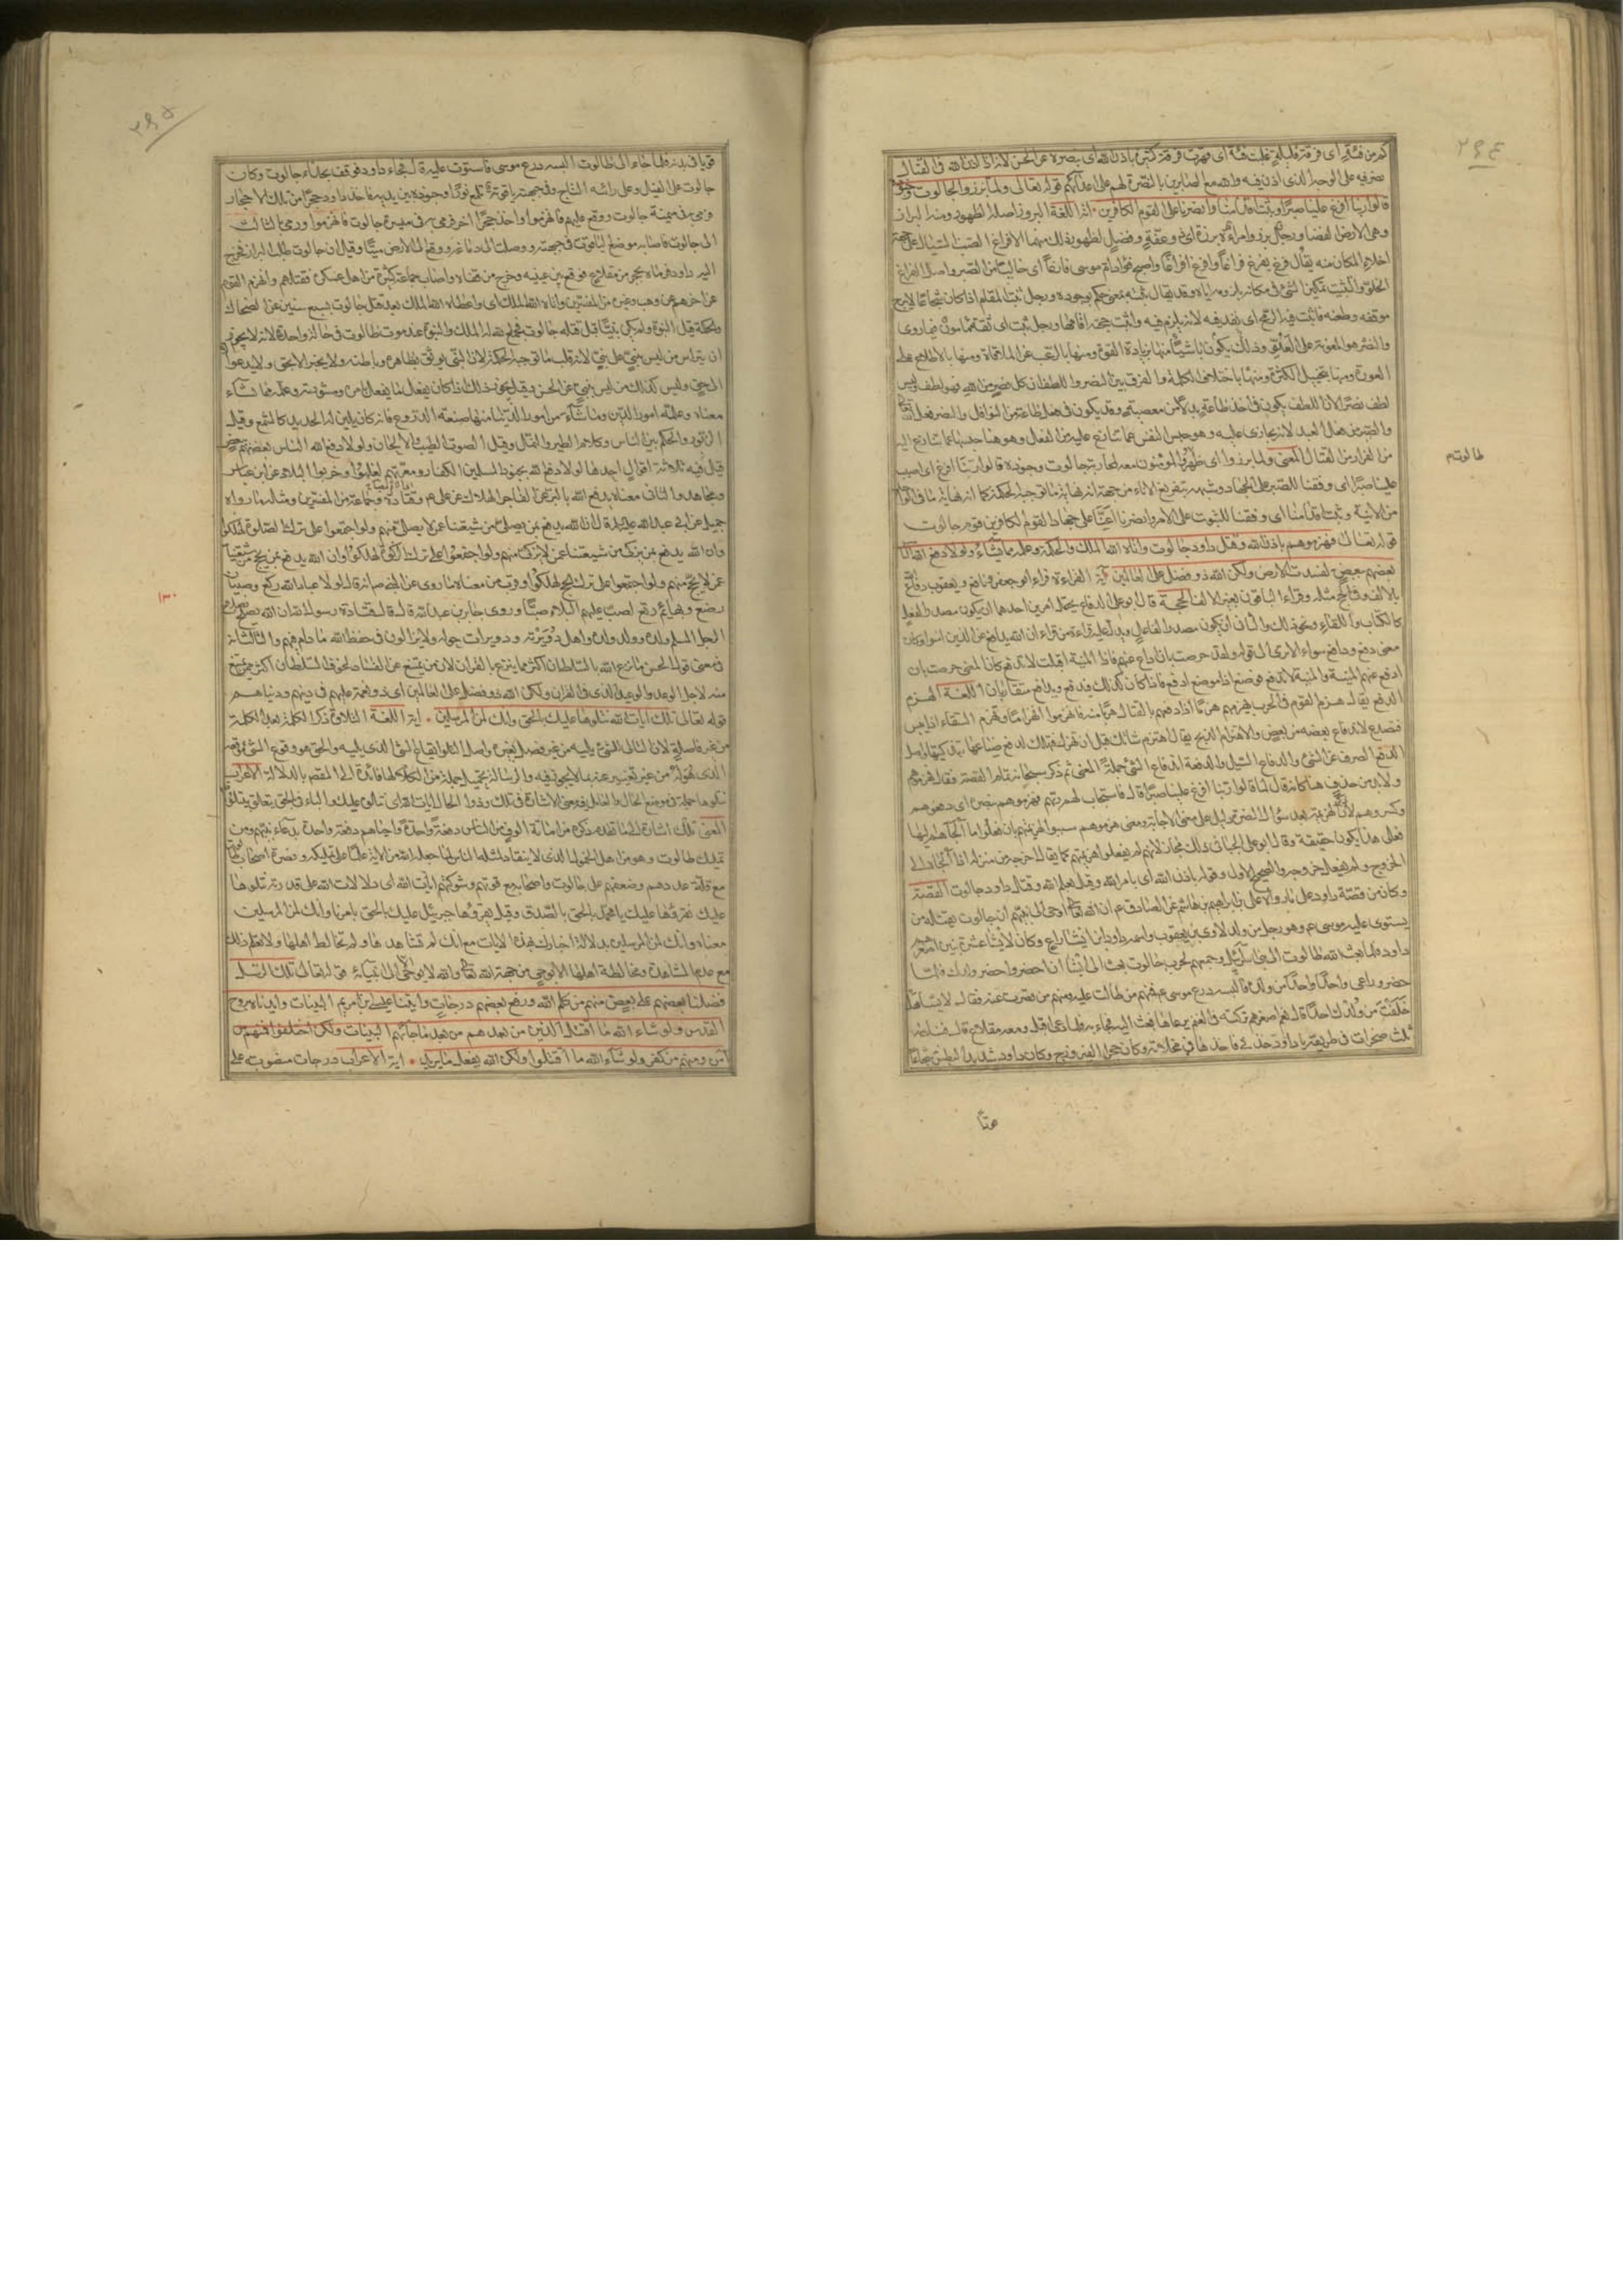 ٢٤٤
كم من فئة اى فرقة قليلة غلبت فئة اى قهرت فرقة كثيرة باذن الله اى بنصره عن الحسن لانه اذا اذن الله فى القتال
نصر فيه على الوجه الذى اذن فيه والله مع الصابرين بالنصرة لهم على اعدائهم قوله تعالى ولما برزوا لجالوت وجنوده
قالوا ربنا افرغ علينا صبرا وثبت اقدامنا وانصرنا على القوم الكافرين اية اللغة البروز اصله الظهور ومنه البراز
وهى الارض الفضا ورجل برز وامراة برزة اى ذو عفة وفضل لظهور ذلك منهما الافراغ الصب السيال على جهة
اخلاء المكان منه يقال فرغ يفرغ فراغا وافرغ افراغا واصبح فؤاد ام موسى فارغا اى خاليا من الصبر واصل الفراغ
الخلو والتثبيت تمكين الشئ فى مكانه بلزومه اياه وقد يقال ثبته بمعنى حكم بوجوده ورجل ثبت المقام اذا كان شجاعا لا يبرح
موقفه وطعنه فاثبت فيه الرمح اى نفذ فيه لانه يلزم فيه واثبت حجته اقامها ورجل ثبت اى ثقة مامون فيما روى
والنصر هو المعونة على العدو وذلك يكون باشياء منها بزيادة القوة ومنها بالرعب عن الملاقاة ومنها بالاطلاع على
العورة ومنها بتخييل الكثرة ومنها باختلاف الكلمة والفرق بين النصر واللطف ان كل نصر من الله فهو لطف وليس كل
لطف نصرا لان اللطف يكون فى اخذ طاعته بدلا من معصيته وقد يكون فى فعل طاعة من النوافل
المعنى ولما برزوا اى ظهر المؤمنون لمحاربة جالوت وجنوده قالوا ربنا افرغ اى اصبب
علينا صبرا اى وفقنا للصبر على الجهاد
وثبت اقدامنا اى وفقنا للثبوت على الامر وانصرنا اعنا على جهاد القوم الكافرين قوم جالوت
قوله تعالى فهزموهم باذن الله وقتل داود جالوت واتاه الله الملك والحكمة وعلمه مما يشاء ولولا دفع الله الناس
بعضهم ببعض لفسدت الارض ولكن الله ذو فضل على العالمين اية القراءة قراء ابو جعفر ونافع ويعقوب دفاع
بالالف وفى الحج مثله وقراء الباقون بغير الالف الحجة قال ابو على الدفاع يحتمل امرين احدهما ان يكون مصدر الفعل
كالكتاب واللقاء ونحو ذلك والثانى ان يكون مصدرا لفاعل يدل عليه قراءة من قراء ان الله يدافع عن الذين امنوا وكان
معنى دفع ودافع سواء الا ترى ان قوله ولقد حرصت بان ادافع عنهم فاذا المنية اقبلت لا تدفع كان المعنى حرصت بان
ادفع عنهم المنية والمنية لا تدفع فوضع ادافع موضع ادفع فاذا كان كذلك فيدفع ويدافع متقاربان اللغة الهزم
الدفع يقال هزم القوم فى الحرب يهزمهم هزما اذا دفعهم بالقتال هربا منه فانهزموا انهزاما وتهزم السقاء اذا يبس
فتصدع لاندفاع بعضه من بعض والاهتزام الذبح
الدفع الصرف عن الشئ والدفاع السيل والدفعة اندفاع الشئ جملة المعنى ثم ذكر سبحانه تمام القصة فقال فهزموهم
ولا بد من حذف هنا كانه قال لما قالوا ربنا افرغ علينا صبرا قال فاستجاب لهم ربهم فهزموهم بنصره اى دفعوهم
وكسروهم لان
فعلى هذا يكون حقيقة وقال ابو على الجبائى ذلك مجاز لانهم لم يفعلوا هزيمتهم كما يقال اخرجه من منزله اذا الجاه الى
الخروج ولم يفعل خروجه والصحيح الاول وقوله باذن الله اى بامر الله وقيل بعلم الله وقتل داود جالوت القصة
وكان من قصة داود على ما رواه على بن ابراهيم بن هاشم عن الصادق ع ان الله اوحى الى نبيهم ان جالوت يقتله من
يستوى عليه درع موسى ع وهو رجل من ولد لاوى بن يعقوب واسمه داود بن ايشا راع وكان لايشا عشرة بنين اصغرهم
داود فلما بعث الله طالوت الى بنى اسرائيل وجمعهم لحرب جالوت بعث الى ايشا ان احضر واحضر ولدك فلما
حضر دعى واحدا واحدا من ولده فالبسه درع موسى ع فمنهم من طالت عليه ومنهم من قصرت عنه فقال لايشا هل
خلفت من ولدك احدا قال نعم اصغرهم تركته فى الغنم يرعاها فبعث اليه فجاء به فلما دعى اقبل ومعه مقلاع قال فنادته
ثلث صخرات فى طريقه يا داود خذنى فاخذها فى مخلاته وكان داود شديد البطش شجاعا
طالوت م
قويا
٢٤٥
قويا فى بدنه فلما جاء الى طالوت البسه درع موسى فاستوت عليه قال فجاء داود فوقف بحذاء جالوت وكان
جالوت على الفيل وعلى راسه التاج وفى جبهته ياقوتة تلمع نورا وجنوده بين يديه فاخذ داود حجرا من تلك الاحجار
فرمى به فى ميمنة جالوت ووقع عليهم فانهزموا واخذ حجرا اخر فرمى به فى ميسرة جالوت فانهزموا ورمى بالثالث
الى جالوت فاصاب موضع الياقوتة فى جبهته ووصلت الى دماغه ووقع الى الارض ميتا وقيل ان جالوت طلب البراز فخرج
اليه داود فرماه بحجر من مقلاع فوقع بين عينيه وخرج من قفاه واصاب جماعة كثيرة من اهل عسكره فقتلهم وانهزم القوم
عن اخرهم عن وهب وغيره من المفسرين واتاه الله الملك اى واعطاه الله الملك بعد قتل جالوت بسبع سنين عن الضحاك
والحكمة قيل النبوة ولم يكن نبيا قبل قتله جالوت فجمع الله له الملك والنبوة عند موت طالوت فى حالة واحدة لانه لا يجوز
ان يتراس من ليس بنبى على نبى لانه قلب ما توجبه الحكمة لان النبى يوثق بظاهره وباطنه ولا يخبر الا بحق ولا يدعو الا
الى حق وليس كذلك من ليس بنبى عن الحسن وقيل يجوز ذلك اذا كان يفعل ما يفعل بامره ومشورته وعلمه مما يشاء
معناه وعلمه امور الدين وما شاء من امور الدنيا منها صنعة الدروع فانه كان يلين له الحديد كالشمع وقيل
الزبور والحكم بين الناس وكلام الطير والنمل وقيل الصوت الطيب والالحان ولولا دفع الله الناس بعضهم ببعض
قيل فيه ثلاثة اقوال احدها لولا دفع الله بجنود المسلمين الكفار ومعرتهم لغلبوا وخربوا البلاد عن ابن عباس
ومجاهد والثانى معناه يدفع الله بالبر عن الفاجر الهلاك عن على ع وقتادة وجماعة من المفسرين ومثله ما رواه
جميل عن ابى عبد الله ع قال ان الله يدفع بمن يصلى من شيعتنا عمن لا يصلى منهم ولو اجتمعوا على ترك الصلوة لهلكوا
وان الله يدفع بمن يزكى من شيعتنا عمن لا يزكى منهم ولو اجتمعوا على ترك الزكوة لهلكوا وان الله يدفع بمن يحج من شيعتنا
عمن لا يحج منهم ولو اجتمعوا على ترك الحج لهلكوا وقريب من معناه ما روى عن النبى ص انه قال لولا عباد الله ركع وصبيان
رضع وبهائم رتع لصب عليهم البلاء صبا وروى جابر بن عبد الله قال قال رسول الله ان الله يصلح بصلاح
الرجل المسلم ولده وولد ولده واهل دويرته ودويرات حوله ولا يزالون فى حفظ الله ما دام فيهم والثالث ان
فى معنى قول الحسن ما يزع الله بالسلطان اكثر مما يزع بالقران لان من يمتنع عن الفساد لخوف السلطان اكثر ممن يمتنع
منه لاجل الوعد والوعيد الذى فى القران ولكن الله ذو فضل على العالمين اى ذو نعمة عليهم فى دينهم ودنياهم
قوله تعالى تلك ايات الله نتلوها عليك بالحق وانك لمن المرسلين اية اللغة التلاوة ذكر الكلمة بعد الكلمة
من غير فاصلة لان التالى للشئ يليه من غير فصل بغيره واصل التلو ايقاع الشئ الذى يليه والحق هو وقوع الشئ موقعه
الذى هو له من غير تغيير عنه بما لا يجوز فيه والرسالة تحميل جملة من الكلام لها فائدة الى المقصد بالدلالة الاعراب
نتلوها جملة فى موضع الحال والعامل فيه معنى الاشارة فى تلك وذو الحال ايات الله اى تتلى عليك والباء فى بالحق يتعلق بنتلوا
المعنى تلك اشارة الى ما تقدم ذكره من اماتة الوف من الناس دفعة واحدة واحياهم دفعة واحدة بدعاء نبيهم ومن
تمليك طالوت وهو من اهل الخمول الذى لا ينقاد لمثله الناس لما جعله الله من الاية علما على تمليكه ونصرة اصحاب طالوت
مع قلة عددهم وضعفهم على جالوت واصحابه مع قوتهم وشوكتهم ايات الله اى دلالات الله على قدرته نتلوها
عليك نقرؤها عليك يا محمد بالحق بالصدق وقيل يقرؤها جبرئيل عليك بالحق بامرنا وانك لمن المرسلين
معناه وانك لمن المرسلين بدلالة اخبارك بهذه الايات مع انك لم تشاهدها ولم تخالط اهلها ولا يعلم ذلك
مع عدم المشاهدة ومخالطة اهلها الا بوحى من جهة الله والله لا يوحى الا الى انبيائه قوله تعالى تلك الرسل
فضلنا بعضهم على بعض منهم من كلم الله ورفع بعضهم درجات واتينا عيسى ابن مريم البينات وايدناه بروح
القدس ولو شاء الله ما اقتتل الذين من بعدهم من بعد ما جاءتهم البينات ولكن اختلفوا فمنهم من
امن ومنهم من كفر ولو شاء الله ما اقتتلوا ولكن الله يفعل ما يريد اية الاعراب درجات منصوب على
١٣٠